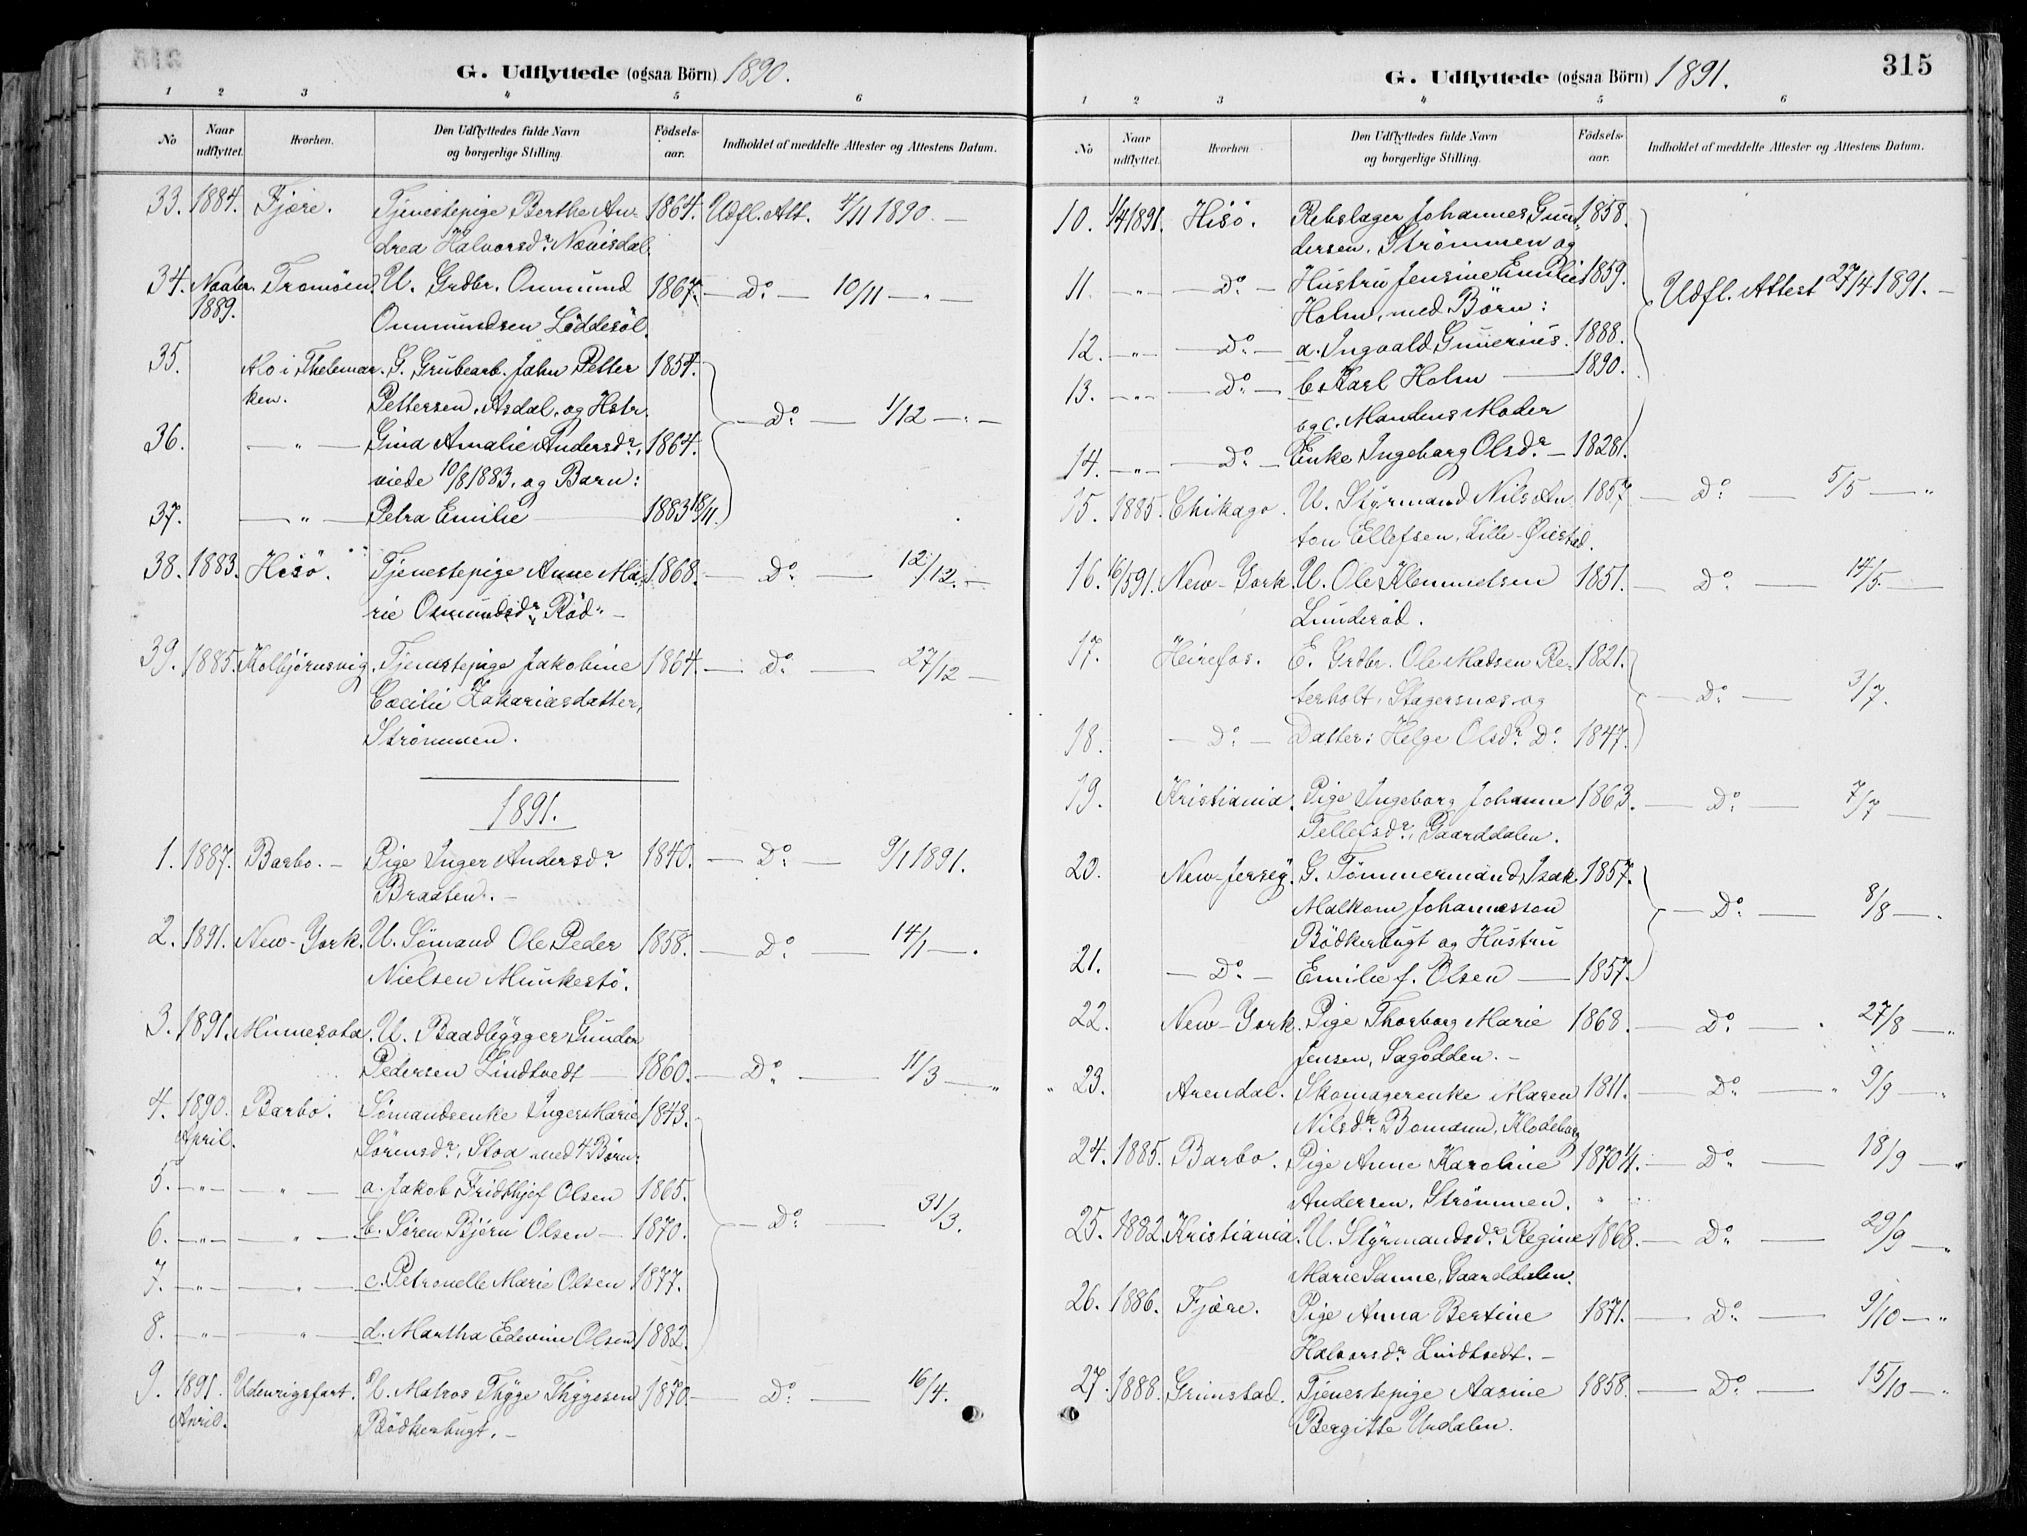 G. Udflyttede (ogsaa Börn) 1890.
1 2 3 4 5 6
No Naar udflyttet. Hvorhen. Den Udflyttedes fulde Navn og borgerlige Stilling. Födsels-aar. Indholdet af meddelte Attester og Attestens Datum.
33. 1884. Fjære. Tjenestepige Berthe An- 1864. Udfl. Att. 4/11 1890. —
drea Halvorsdr. Nævisdal.
34. Novbr. Tromöen. U. Grdbr. Onmund 1867. — Do. — 10/11 — „ —
1889. Onmundsen Löddesöl.
35. Mo i Thelemar- G. Grubearb. John Petter 1854.
ken. Pettersen, Asdal, og Hstr. — Do. — 1/12 — „ —
36. — „ — Gina Amalie Andersdr., 1864.
viede 10/8 1883, og Barn:
37. — „ — Petra Emilie — 1883 18/11.
38. 1883. Hisö. Tjenestepige Anne Ma- 1868. — Do. — 12/12. —
rie Osmundsdr. Röd. —
39. 1885. Kolbjörnsvig. Tjenestepige Jakobine 1864. — Do. — 27/12 —
Cæcilie Zakariasdatter,
Strömmen.
1891.
1. 1887. Barbo. — Pige Inger Andersdr. 1840. — Do. — 9/1 1891.
Braaten. —
2. 1891. New-York. U. Sömand Ole Peder 1858. — Do. — 14/1 — „
Nielsen Munkestö.
3. 1891. Minnesota. U. Baadbygger Gunder
Pedersen Lindtvedt — 1860. — Do. — 11/3 — „
4. 1890. Barbo. Sömandsenke Inger Marie 1843.
April. Sörensdr., Stoa med 4 Börn:
5. — „ — — „ — a. Jakob Fridthjof Olsen 1865.
— Do. — 31/3.
6. — „ — — „ — b. Sören Björn Olsen — 1870.
7. — „ — — „ — c. Petronelle Marie Olsen 1877.
8. — „ — — „ — d. Martha Edevine Olsen 1882.
9. 1891. Udenrigsfart. U. Matros Thyge Thygesen 1870 — Do. — 16/4.
April. Bödkerbugt. —
G. Udflyttede (ogsaa Börn) 1891. 315
1 2 3 4 5 6
No Naar udflyttet. Hvorhen Den Udflyttedes fulde Navn og borgerlige Stilling. Födsels-aar. Indholdet af meddelte Attester og Attestens Datum.
10. 1/4 1891. Hisö. Rebslager Johannes Gun- 1858.
dersen, Strömmen og
11. — „ — — Do. — Hustru Jensine Emilie 1859.
Holm, med Börn: Udfl. Attest 27/4 1891. —
12. — „ — — Do. — a. Ingvald Gunerius. 1888.
13. — „ — — Do. — b. Karl Holm — 1890.
og c. Mandens Moder
14. — „ — — Do. — Enke Ingeborg Olsdr. — 1828.
15. 1885. Chikago. U. Styrmand Nils An- 1857 — Do. — 5/5 — „
ton Ellefsen, Lille-Øiestad.
16. 6/5 91. New-York. U. Ole Klemmetsen 1851. — Do. — 14/5. —
Lunderöd.
17. Heirefos. E. Grdbr. Ole Madsen Re- 1821.
terholt, Stagersnæs, og — Do. — 3/7.
18. — Do. — Datter: Helge Olsdr. Do. 1847.
19. Kristiania. Pige Ingeborg Johanne 1863. — Do. — 7/7 —
Tellefsdr., Gaarddalen.
20. New-Jersey. G. Tömmermand Isak 1857.
Malkom Johannessen — Do. — 8/8 — „
Bödkerbugt og Hustru
21. — Do. — Emilie f. Olsen — 1857.
22. New-York. Pige Thorborg Marie 1868. — Do. — 27/8 — „
Jensen, Sagodden. —
23. Arendal. Skomagerenke Maren 1811. — Do. — 9/9 — „
Nilsdr. Bomden, Klodeborg
24. 1885. Barbo. Pige Anne Karoline 1870 1/4. — Do. — 18/9 — „
Andersen, Strömmen.
25. 1882. Kristiania. U. Styrmandsdr. Regine 1868. — Do. — 29/9 — „
Marie Sanne, Gaarddalen.
26. 1886. Fjære. Pige Anna Bertine 1871. — Do. — 9/10 — „
Halvorsdr. Lindtvedt. —
27. 1888. Grimstad. Tjenestepige Aasine 1858. — Do. — 15/10 — „
Bergitte Urdalen.